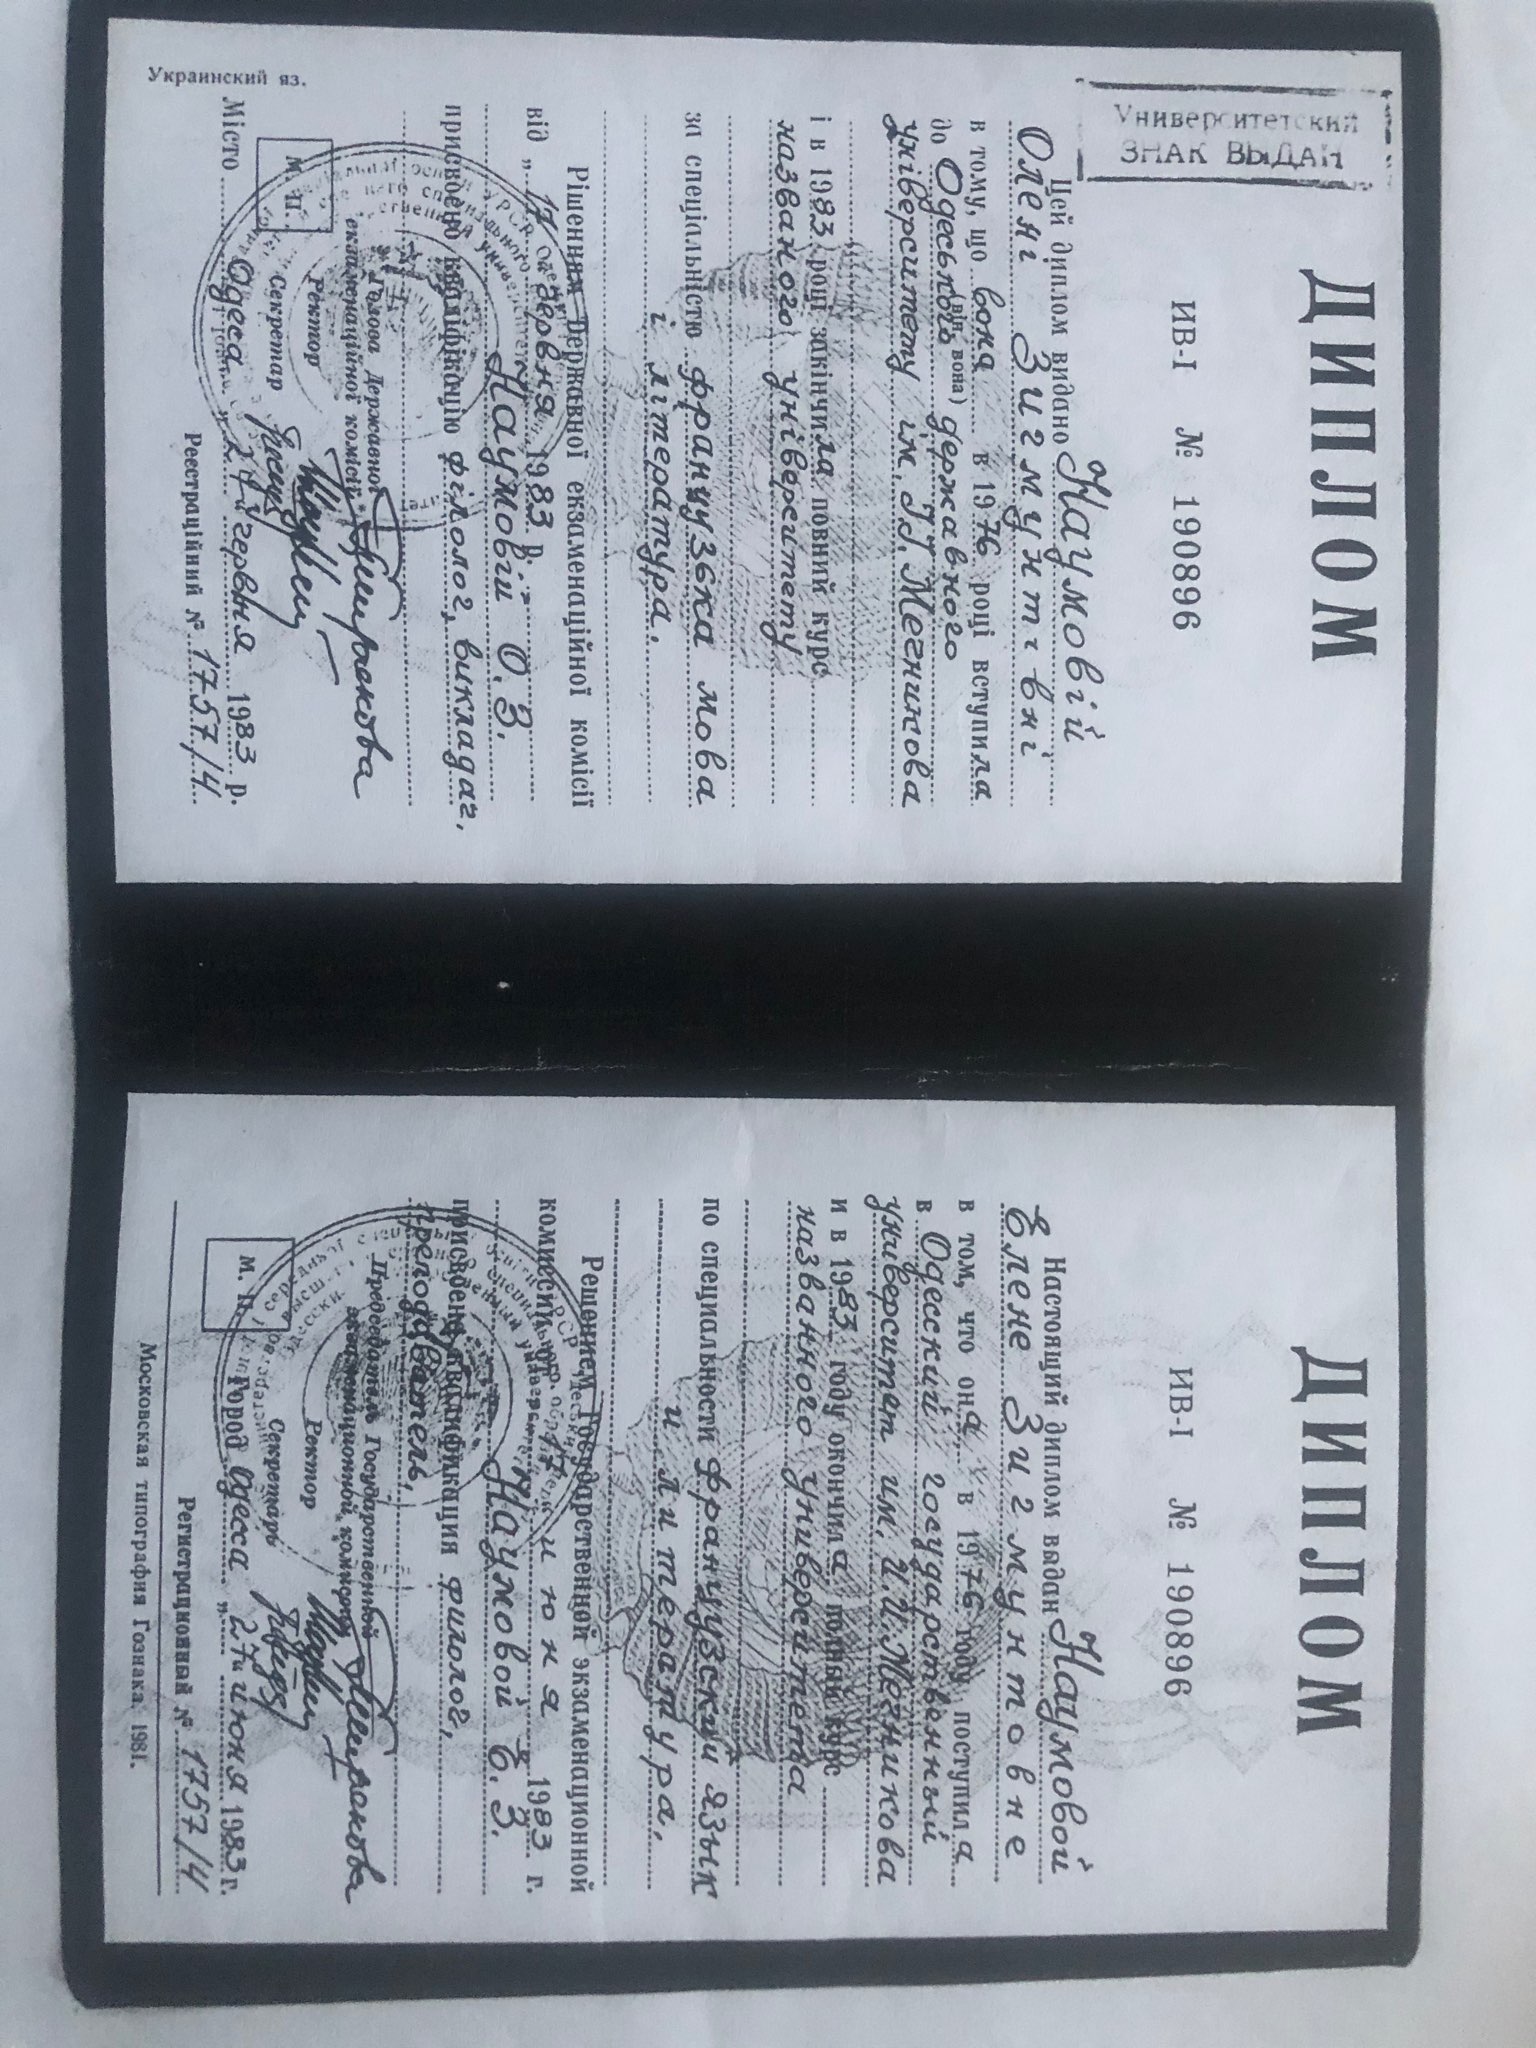 Университетский
ЗНАК ВЫДАН
ДИПЛОМ
ИВ-I № 190896
Цей диплом видано Наумовій
Олені Зигмунтівні
в тому, що вона в 1976 році вступила
(він, вона)
до Одеського державного
університету ім. І.І. Мечникова
і в 1983 році закінчила повний курс
названого університету
за спеціальністю французька мова
і література.
Рішенням Державної екзаменаційної комісії
від „17 червня 1983 р.
Наумовій О.З.
присвоєно кваліфікацію філолог, викладач,
Голова Державної
екзаменаційної комісії
Ректор
Секретар
М. П.
Місто Одеса „27" червня 1983 р.
Реєстраційний № 1757/4
Украинский яз.
ДИПЛОМ
ИВ-I № 190896
Настоящий диплом выдан Наумовой
Елене Зигмунтовне
в том, что она в 1976 году поступила
в Одесский государственный
университет им. И.И. Мечникова
и в 1983 году окончила полный курс
названного университета
по специальности французский язык
и литература.
Решением Государственной экзаменационной
комиссии от 17 июня 1983 г.
Наумовой Е.З.
присвоена квалификация филолог,
преподаватель,
Председатель Государственной
экзаменационной комиссии
Ректор
Секретарь
М. П.
Город Одесса „27" июня 1983 г.
Регистрационный № 1757/4
Московская типография Гознака. 1981.